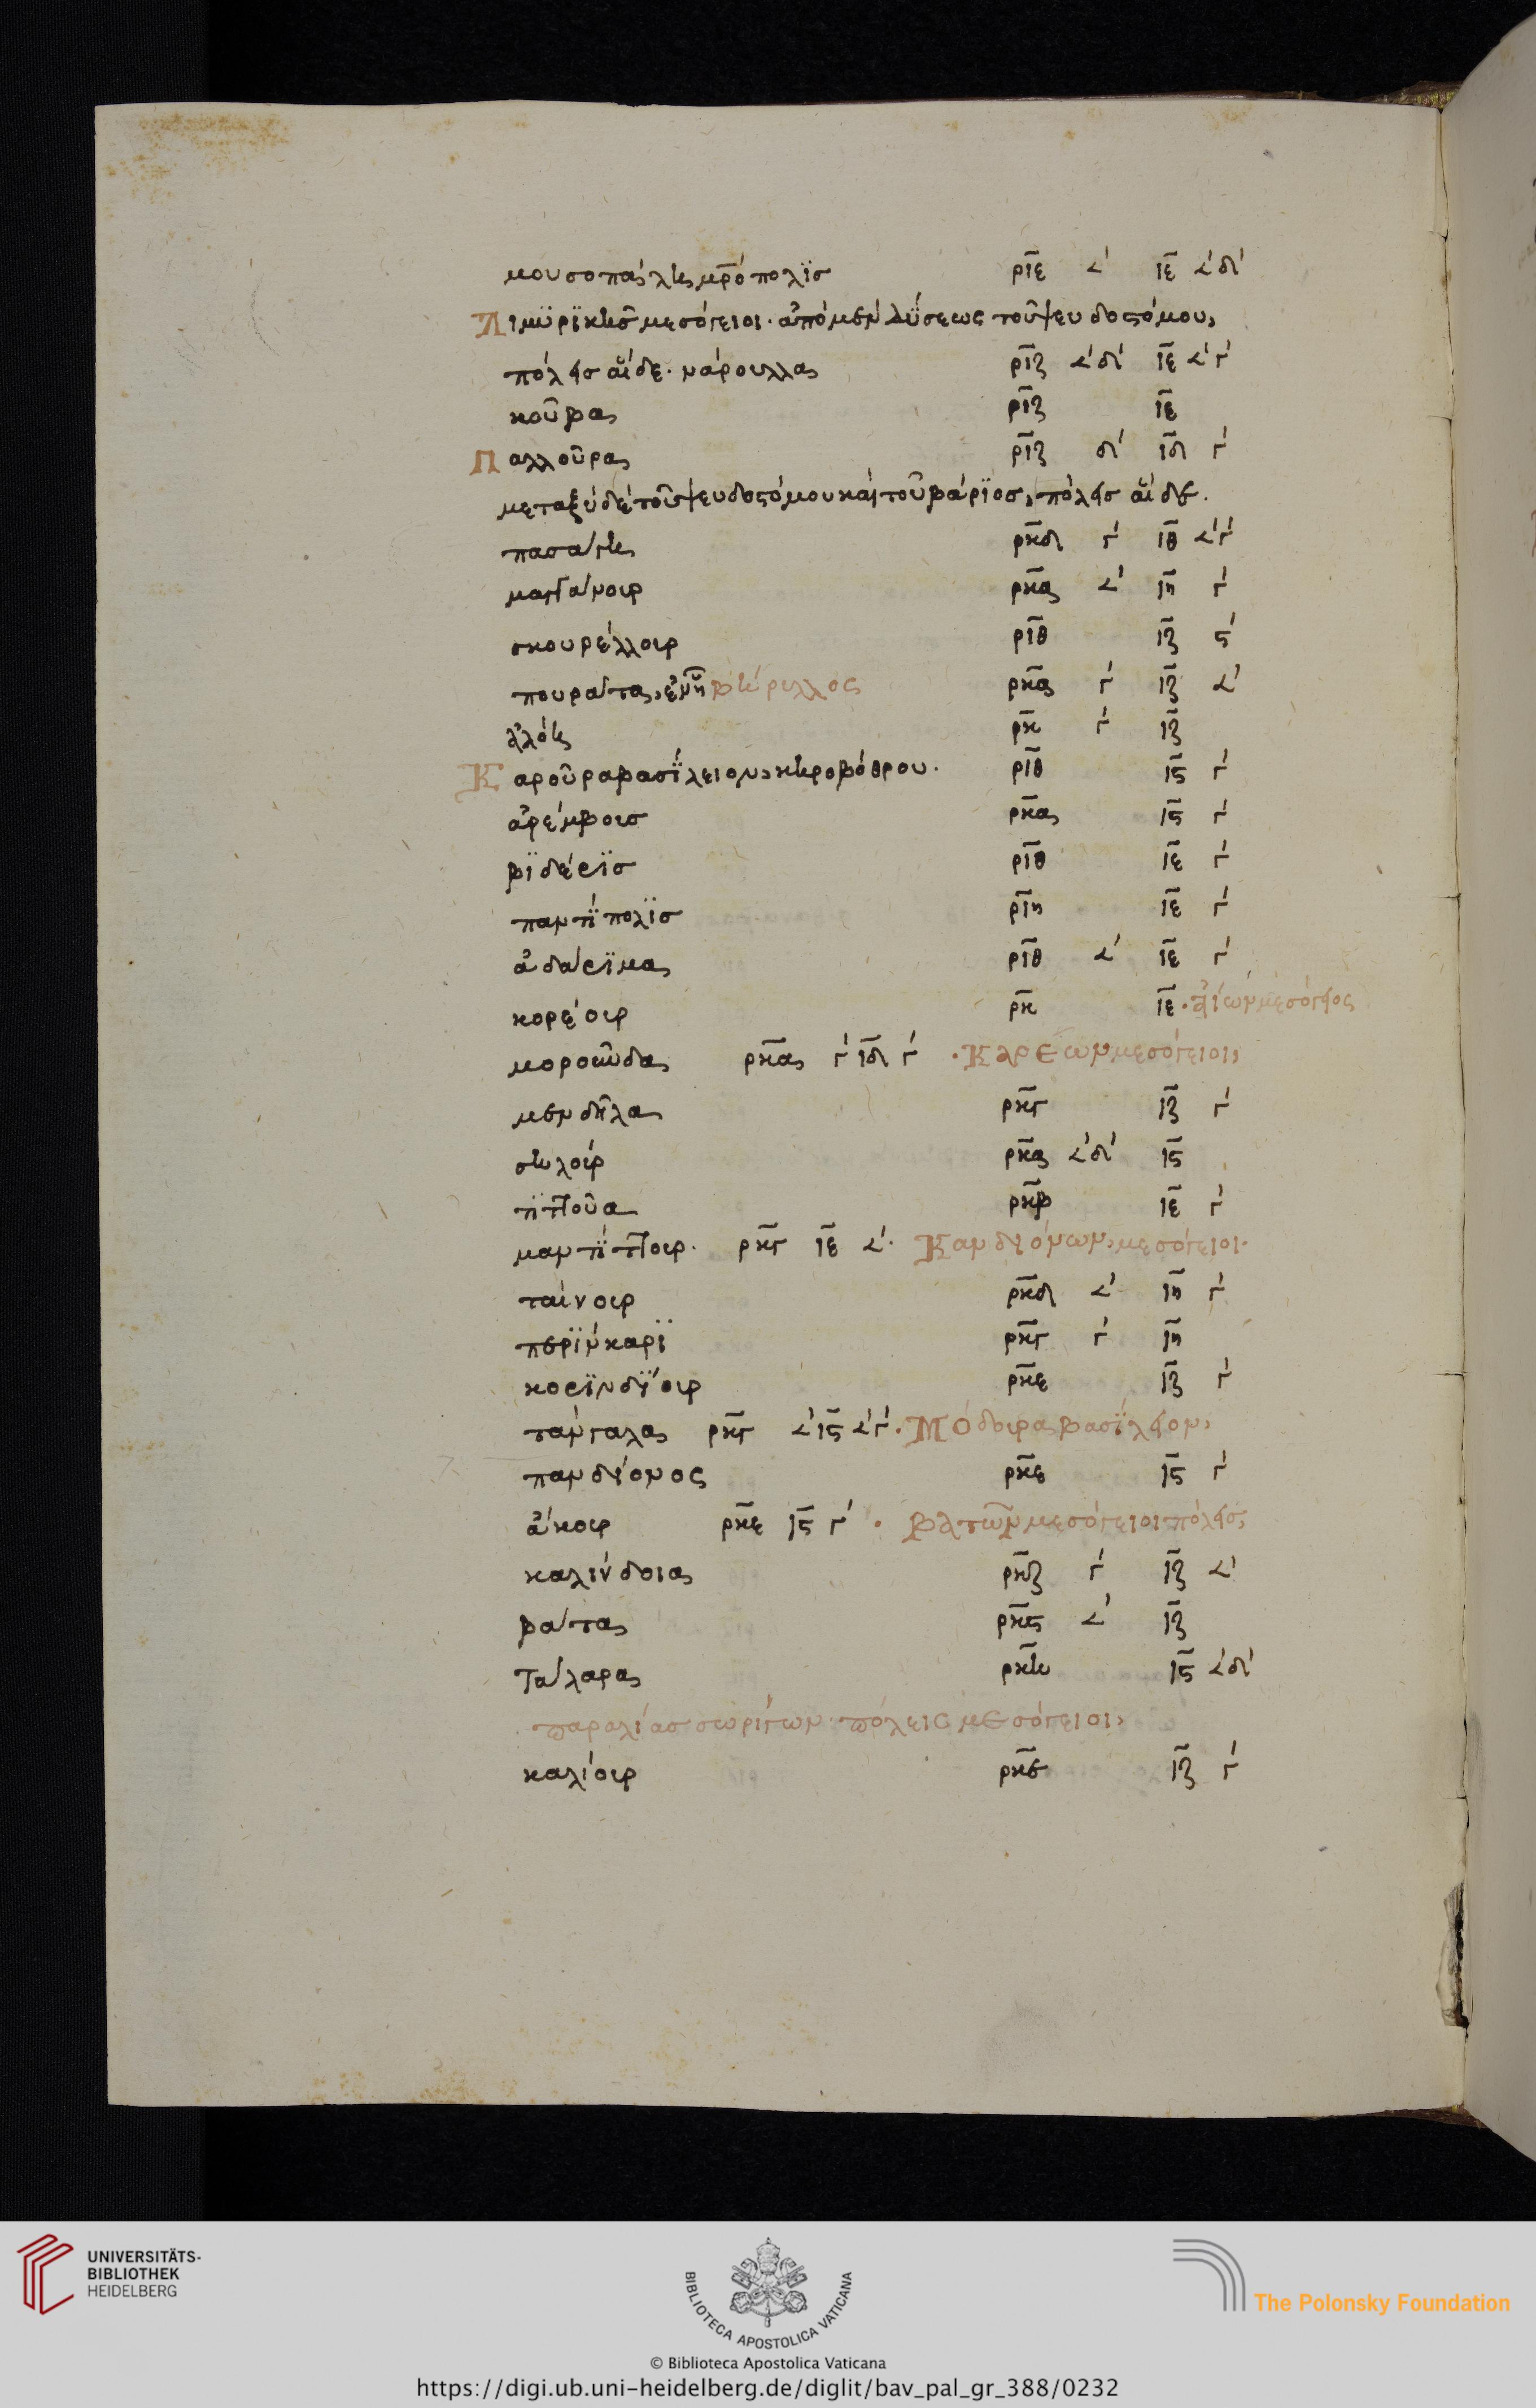 μουσοπάλη μρόπολϊσ ριε ∠' ιε ∠'δ'
Λιμϋρϊκῆσ μεσόγειοι. ἀπὸ μὲν δύσεως τοῦ ψευδοστόμου,
πόλεισ αἵδε. νάρουλλα ριζ ∠'δ' ιε ∠'γ'
κοῦβα ριζ ιε
Παλλοῦρα ριζ δ' ιδ γ'
μεταξὺ δὲ τοῦ ψευδοστόμου καὶ τοῦ βάρϊοσ, πόλεισ αἵδε.
πασάγη ρκδ γ' ιθ ∠'γ'
μαστάνουρ ρκα ∠' ιη γ'
σκουρέλλουρ ριθ ιζ ς'
πουράτα, ἐν ᾗ βήρυλλος ρκα γ' ιζ ∠'
ἀλόη ρκ γ' ιζ
Καροῦρα βασίλειον, κηροβόθρου. ριθ ις γ'
ἀρέμβουσ ρκα ις γ'
βϊδέρϊσ ριθ ιε γ'
παντίπολϊσ ριη ιε γ'
ἀδάρϊμα ριθ ∠' ιε γ'
κορέουρ ρκ ιε. ἀΐων μεσόγειος
μοροῦνδα ρκα γ' ιδ γ' . Καρεων μεσόγειοι,
μενδῆλα ρκγ ιζ γ'
σηλούρ ρκα ∠'δ' ις
τϊττοῦα ρκβ ιε γ'
μαντίττουρ. ρκγ ιε ∠'. Κανδιόνων, μεσόγειοι.
ταίνουρ ρκδ ∠' ιη γ'
περϊνκαρϊ ρκγ γ' ιη
κορϊνδΐουρ ρκε ιζ γ'
τάνγαλα ρκγ ∠' ις ∠'γ'. Μόδουρα βασίλειον,
πανδίονος ρκε ις γ'
ἄκουρ ρκε ις γ' . Βατῶν μεσόγειοι πόλεις
καλίνδοια ρκζ γ' ιζ ∠'
βάτα ρκς ∠' ιζ
Τάλαρα ρκη ις ∠'δ'
παραλίασ σωρίγων πόλεις μεσόγειοι,
καλίουρ ρκε ιζ γ'
UNIVERSITÄTS-
BIBLIOTHEK
HEIDELBERG
BIBLIOTECA APOSTOLICA VATICANA
The Polonsky Foundation
© Biblioteca Apostolica Vaticana
https://digi.ub.uni-heidelberg.de/diglit/bav_pal_gr_388/0232